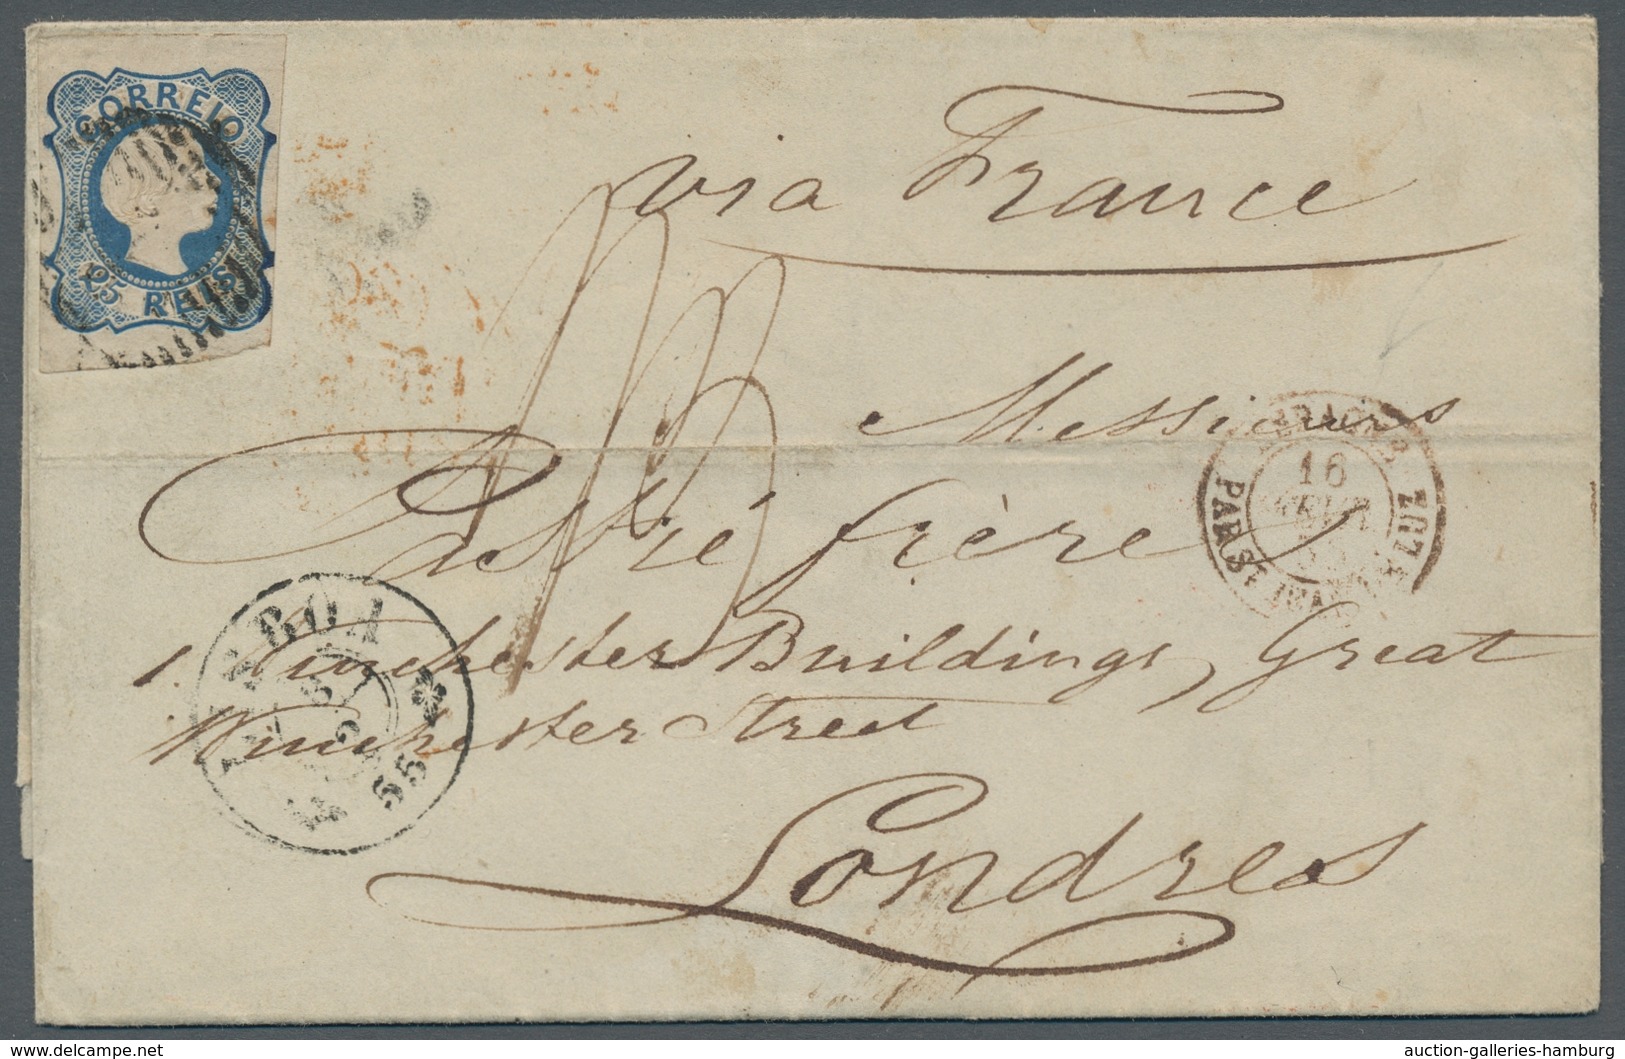 CORREIO
25 REIS
via France
Messieurs
Pastré frères
1. Winchester Buildings, Great
Winchester Street
Londres
16
ESPAGNE
PAR ST JEAN DE LUZ
LISBOA
55
auction-galleries-hamburg